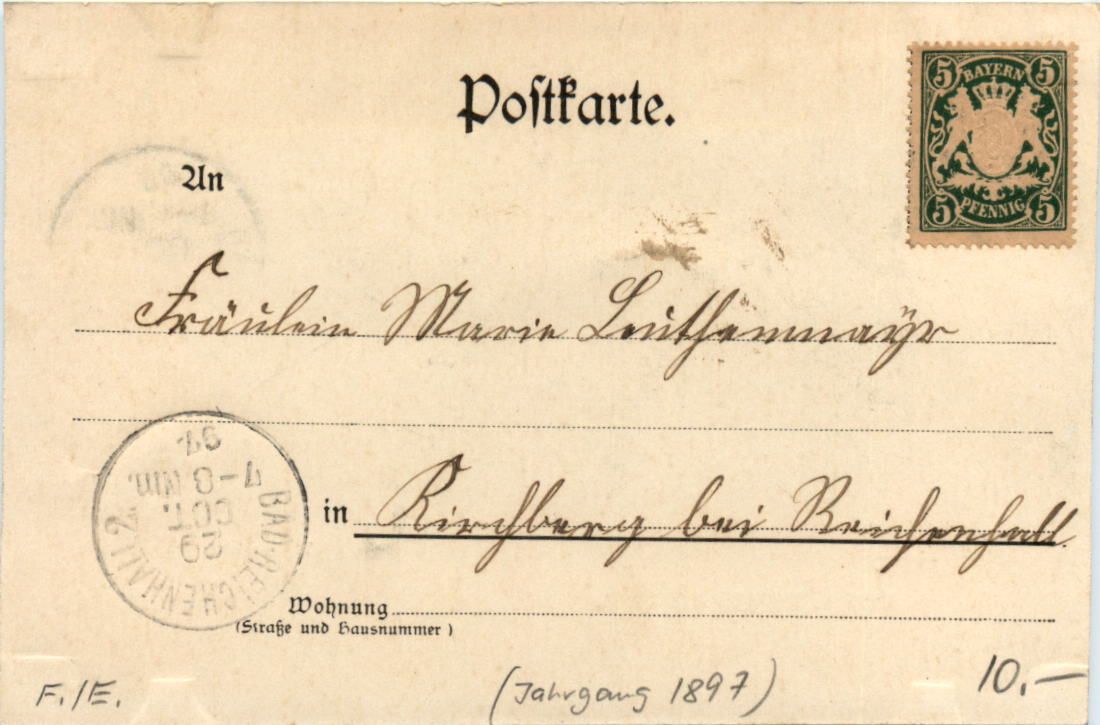 Postkarte.
5 BAYERN 5
5 PFENNIG 5
An
Fräulein Marie Leuthenmayr
BAD-REICHENHALL 2.
29
OCT.
7-8 Nm.
97
in Kirchberg bei Reichenhall.
Wohnung
(Straße und Hausnummer)
F./E.
(Jahrgang 1897)
10.-